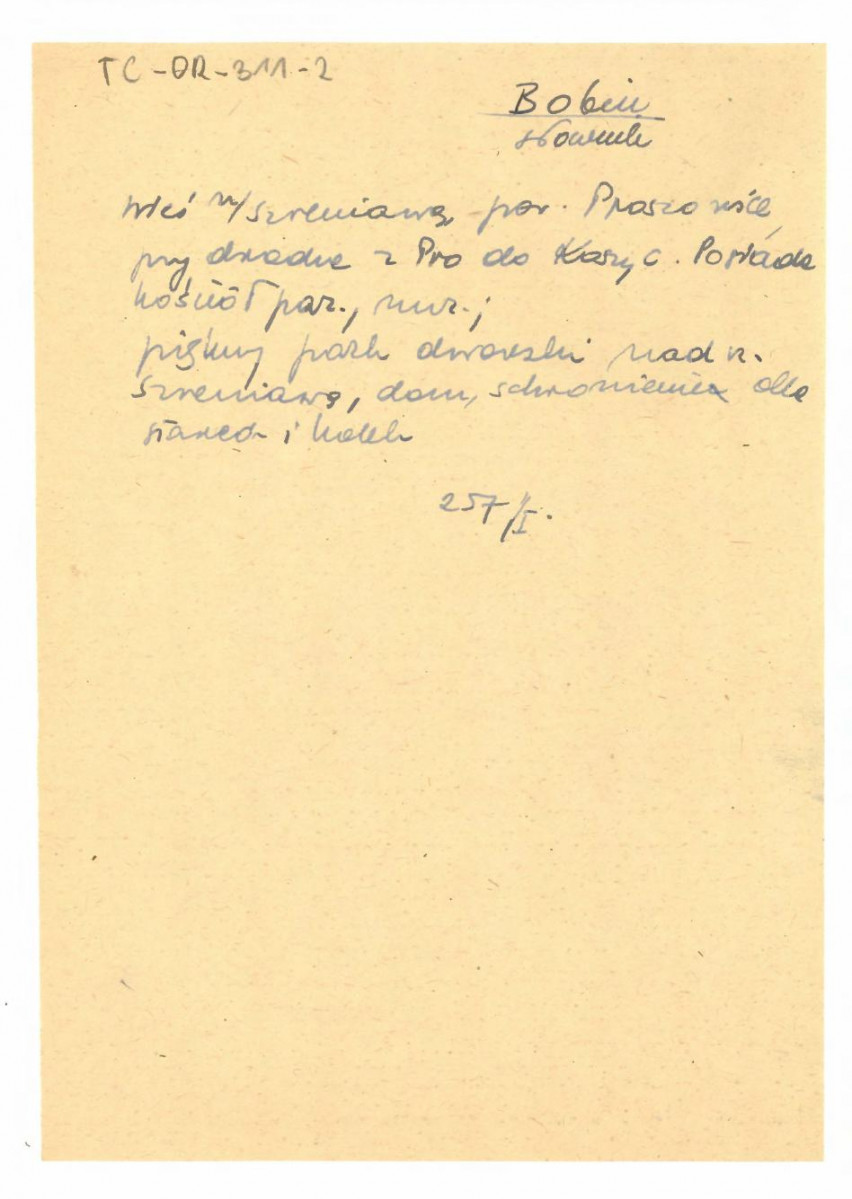 TC-OR-311-2
Bobin
słownik
wieś n/Szreniawą, pow. Proszowice,
przy drodze z Pro do Koszyc. Posiada
kościół par., mur.;
piękny park dworski nad rz.
Szreniawą, dom, schronienia dla
starców i kalek
257/I.